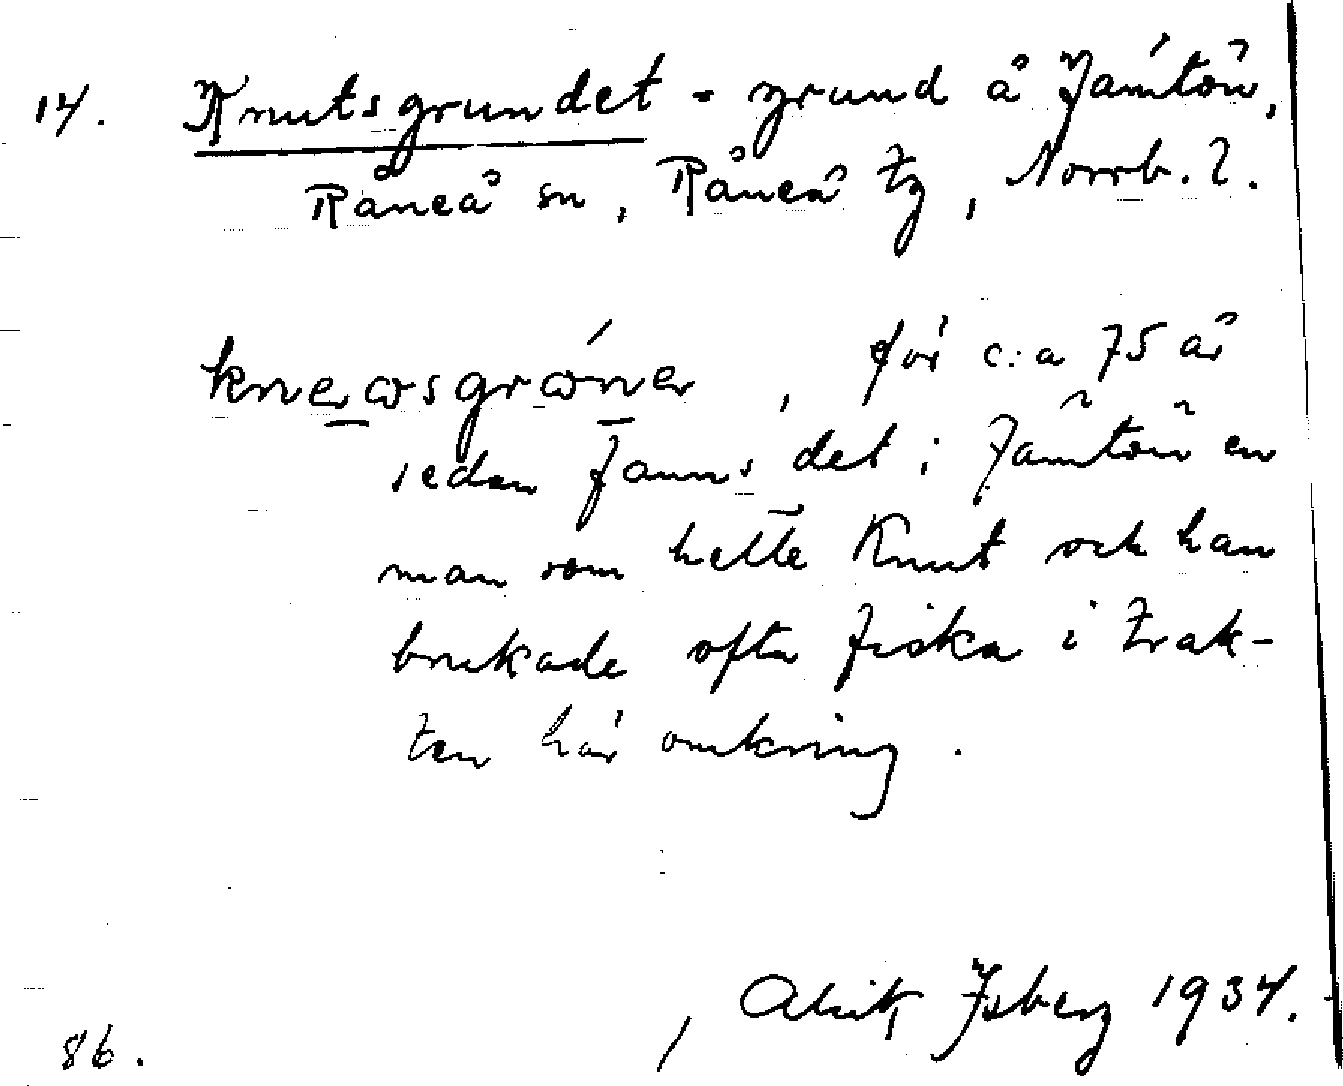 14. Knutsgrundet - grund å Jämtön,
Råneå sn, Råneå tg, Norrb. l.
för c:a 75 år
sedan fanns det i Jämtön en
man som hette Knut och han
brukade ofta fiska i trak-
ten här omkring.
Alrik Isberg 1934.
86.